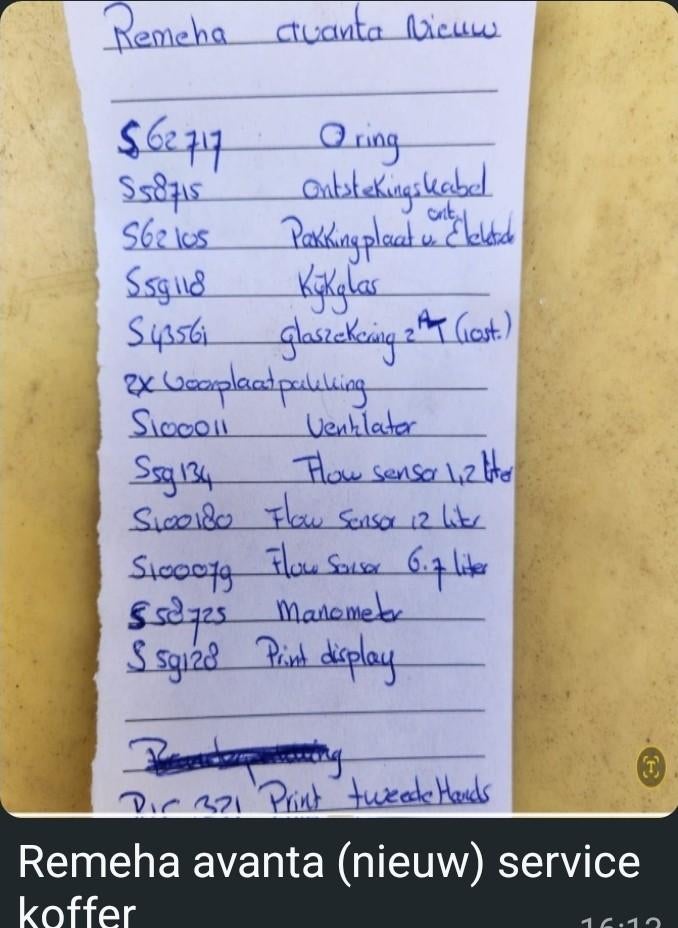 Remeha avanta Nieuw
S62717 O ring
S58715 Ontstekingskabel
S62105 Pakkingplaat v. ont. Elektrode
S59118 Kijkglas
S43561 glaszekering 2AT (10st.)
2x Voorplaatpakking
S100011 Ventilator
S59134 Flow sensor 1,2 liter
S100180 Flow Sensor 12 liter
S100079 Flow Sensor 6.7 liter
S58725 Manometer
S59128 Print display
321 Print tweede Hands
Remeha avanta (nieuw) service
koffer
16:12